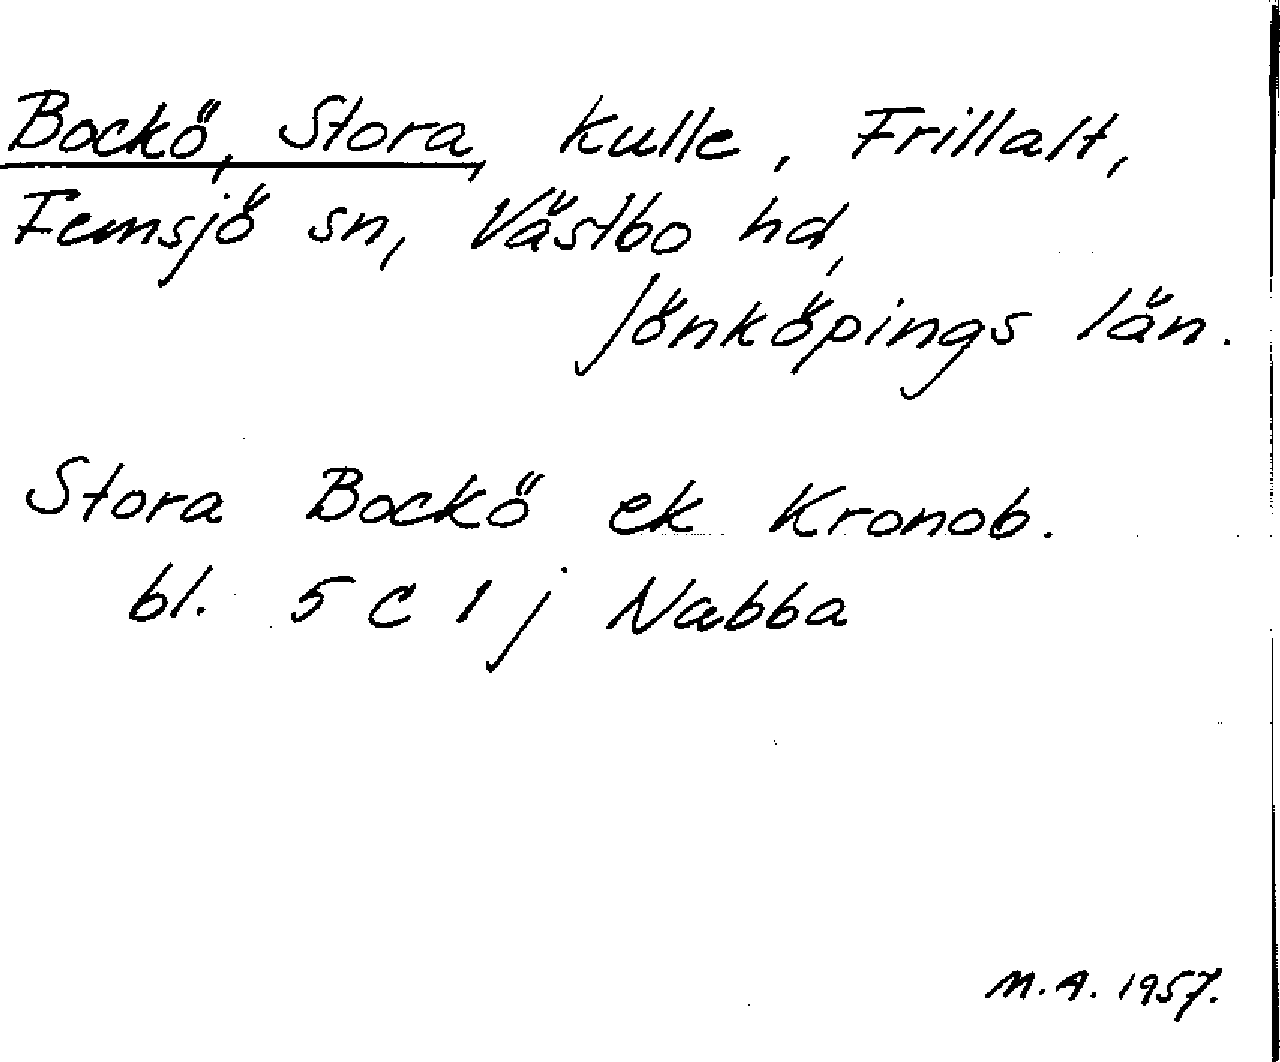 Bockö, Stora, kulle, Frillalt,
Femsjö sn, Västbo hd,
Jönköpings län.
Stora Bockö ek Kronob.
bl. 5 C 1 j Nabba
M.A. 1957.